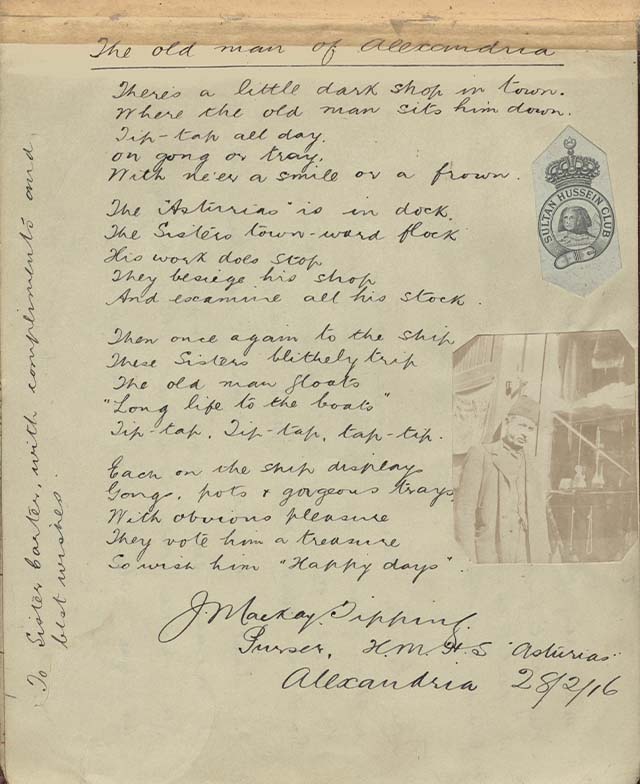 The old man of Alexandria
There's a little dark shop in town.
Where the old man sits him down.
Tip-tap all day.
on gong or tray.
With ne'er a smile or a frown.
The "Asturias" is in dock.
The Sisters town-ward flock
His work does stop
They besiege his shop
And examine all his stock.
Then once again to the ship
These Sisters blithely trip
The old man gloats
"Long life to the boats"
Tip-tap, Tip-tap, tap-tip.
Each on the ship displays
Gongs, pots & gorgeous trays
With obvious pleasure
They vote him a treasure
So wish him "Happy days".
J Mackay Tipping.
Purser, H.M.H.S "Asturias"
Alexandria 28/2/16
To Sister Carter, with compliments and
best wishes.
SULTAN HUSSEIN CLUB